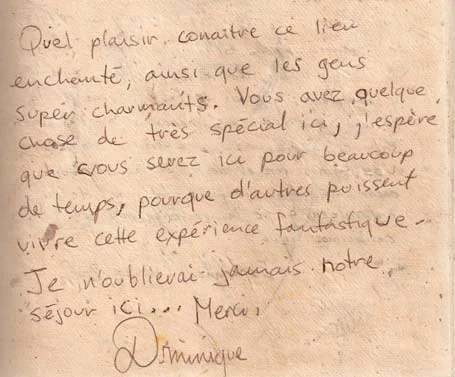 Quel plaisir conaître ce lieu
enchanté, ainsi que les gens
super charmants. Vous avez quelque
chose de très spécial ici, j'espère
que vous serez ici pour beaucoup
de temps, pourque d'autres puissent
vivre cette expérience fantastique.
Je n'oublierai jamais notre
séjour ici... Merci,
Dominique